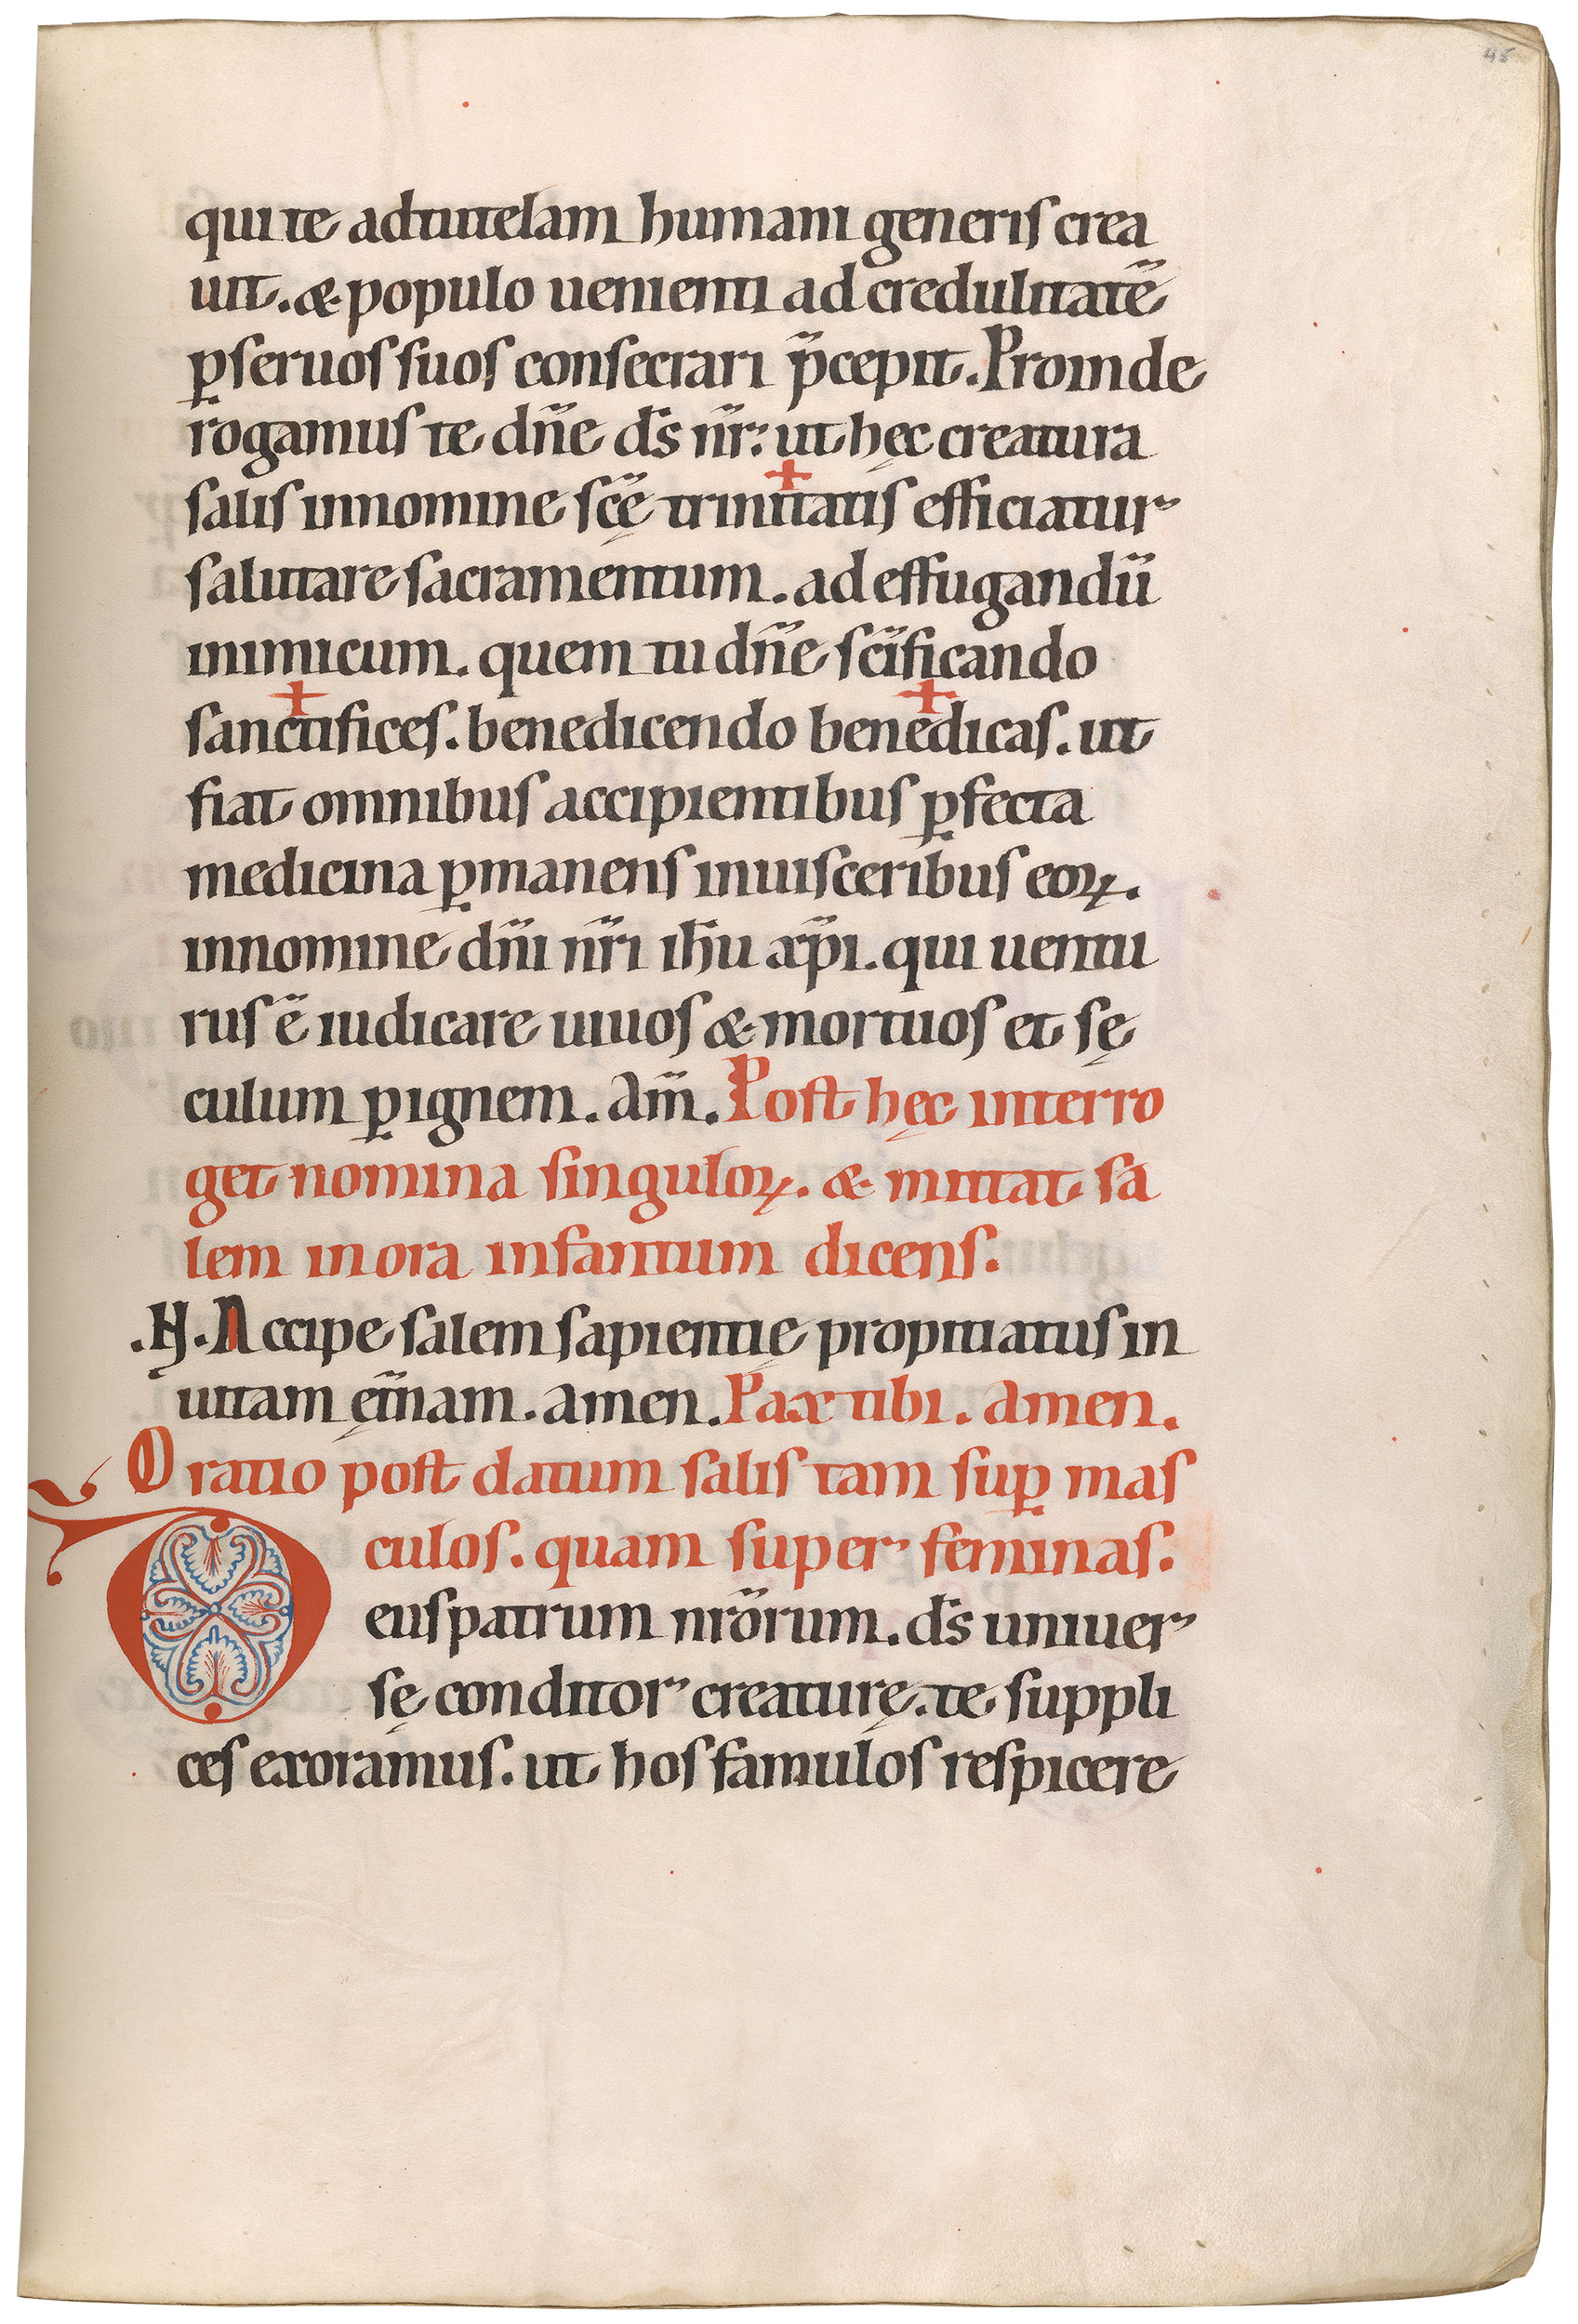 45
qui te ad tutelam humani generis crea
uit. & populo uenienti ad credulitatē
ꝑ seruos suos consecrari p̄cepit. Proinde
rogamus te dn̄e ds̄ nr̄: ut hęc creatura
salis in nomine sc̄ę trinitatis efficiatur
salutare sacramentum. ad effugandū
inimicum. quem tu dn̄e sc̄ificando
sanctifices. benedicendo benedicas. ut
fiat omnibus accipientibus ꝑfecta
medicina ꝑmanens in uisceribus eoꝝ.
in nomine dn̄i nr̄i ih̄u xp̄i. qui uentu
rus ē iudicare uiuos & mortuos et sę
culum ꝑ ignem. Am̄. Post hęc interro
get nomina singuloꝝ. & mittat sa
lem in ora infantum dicens.
.N. Accipe salem sapientię propitiatus in
uitam ęt̄nam. amen. Pax tibi. Amen.
Oratio post datum salis tam suꝑ mas
culos. quam super feminas.
Deus patrum nr̄orum. ds̄ uniuer
sę conditor creaturę. te suppli
ces exoramus. ut hos famulos respicere